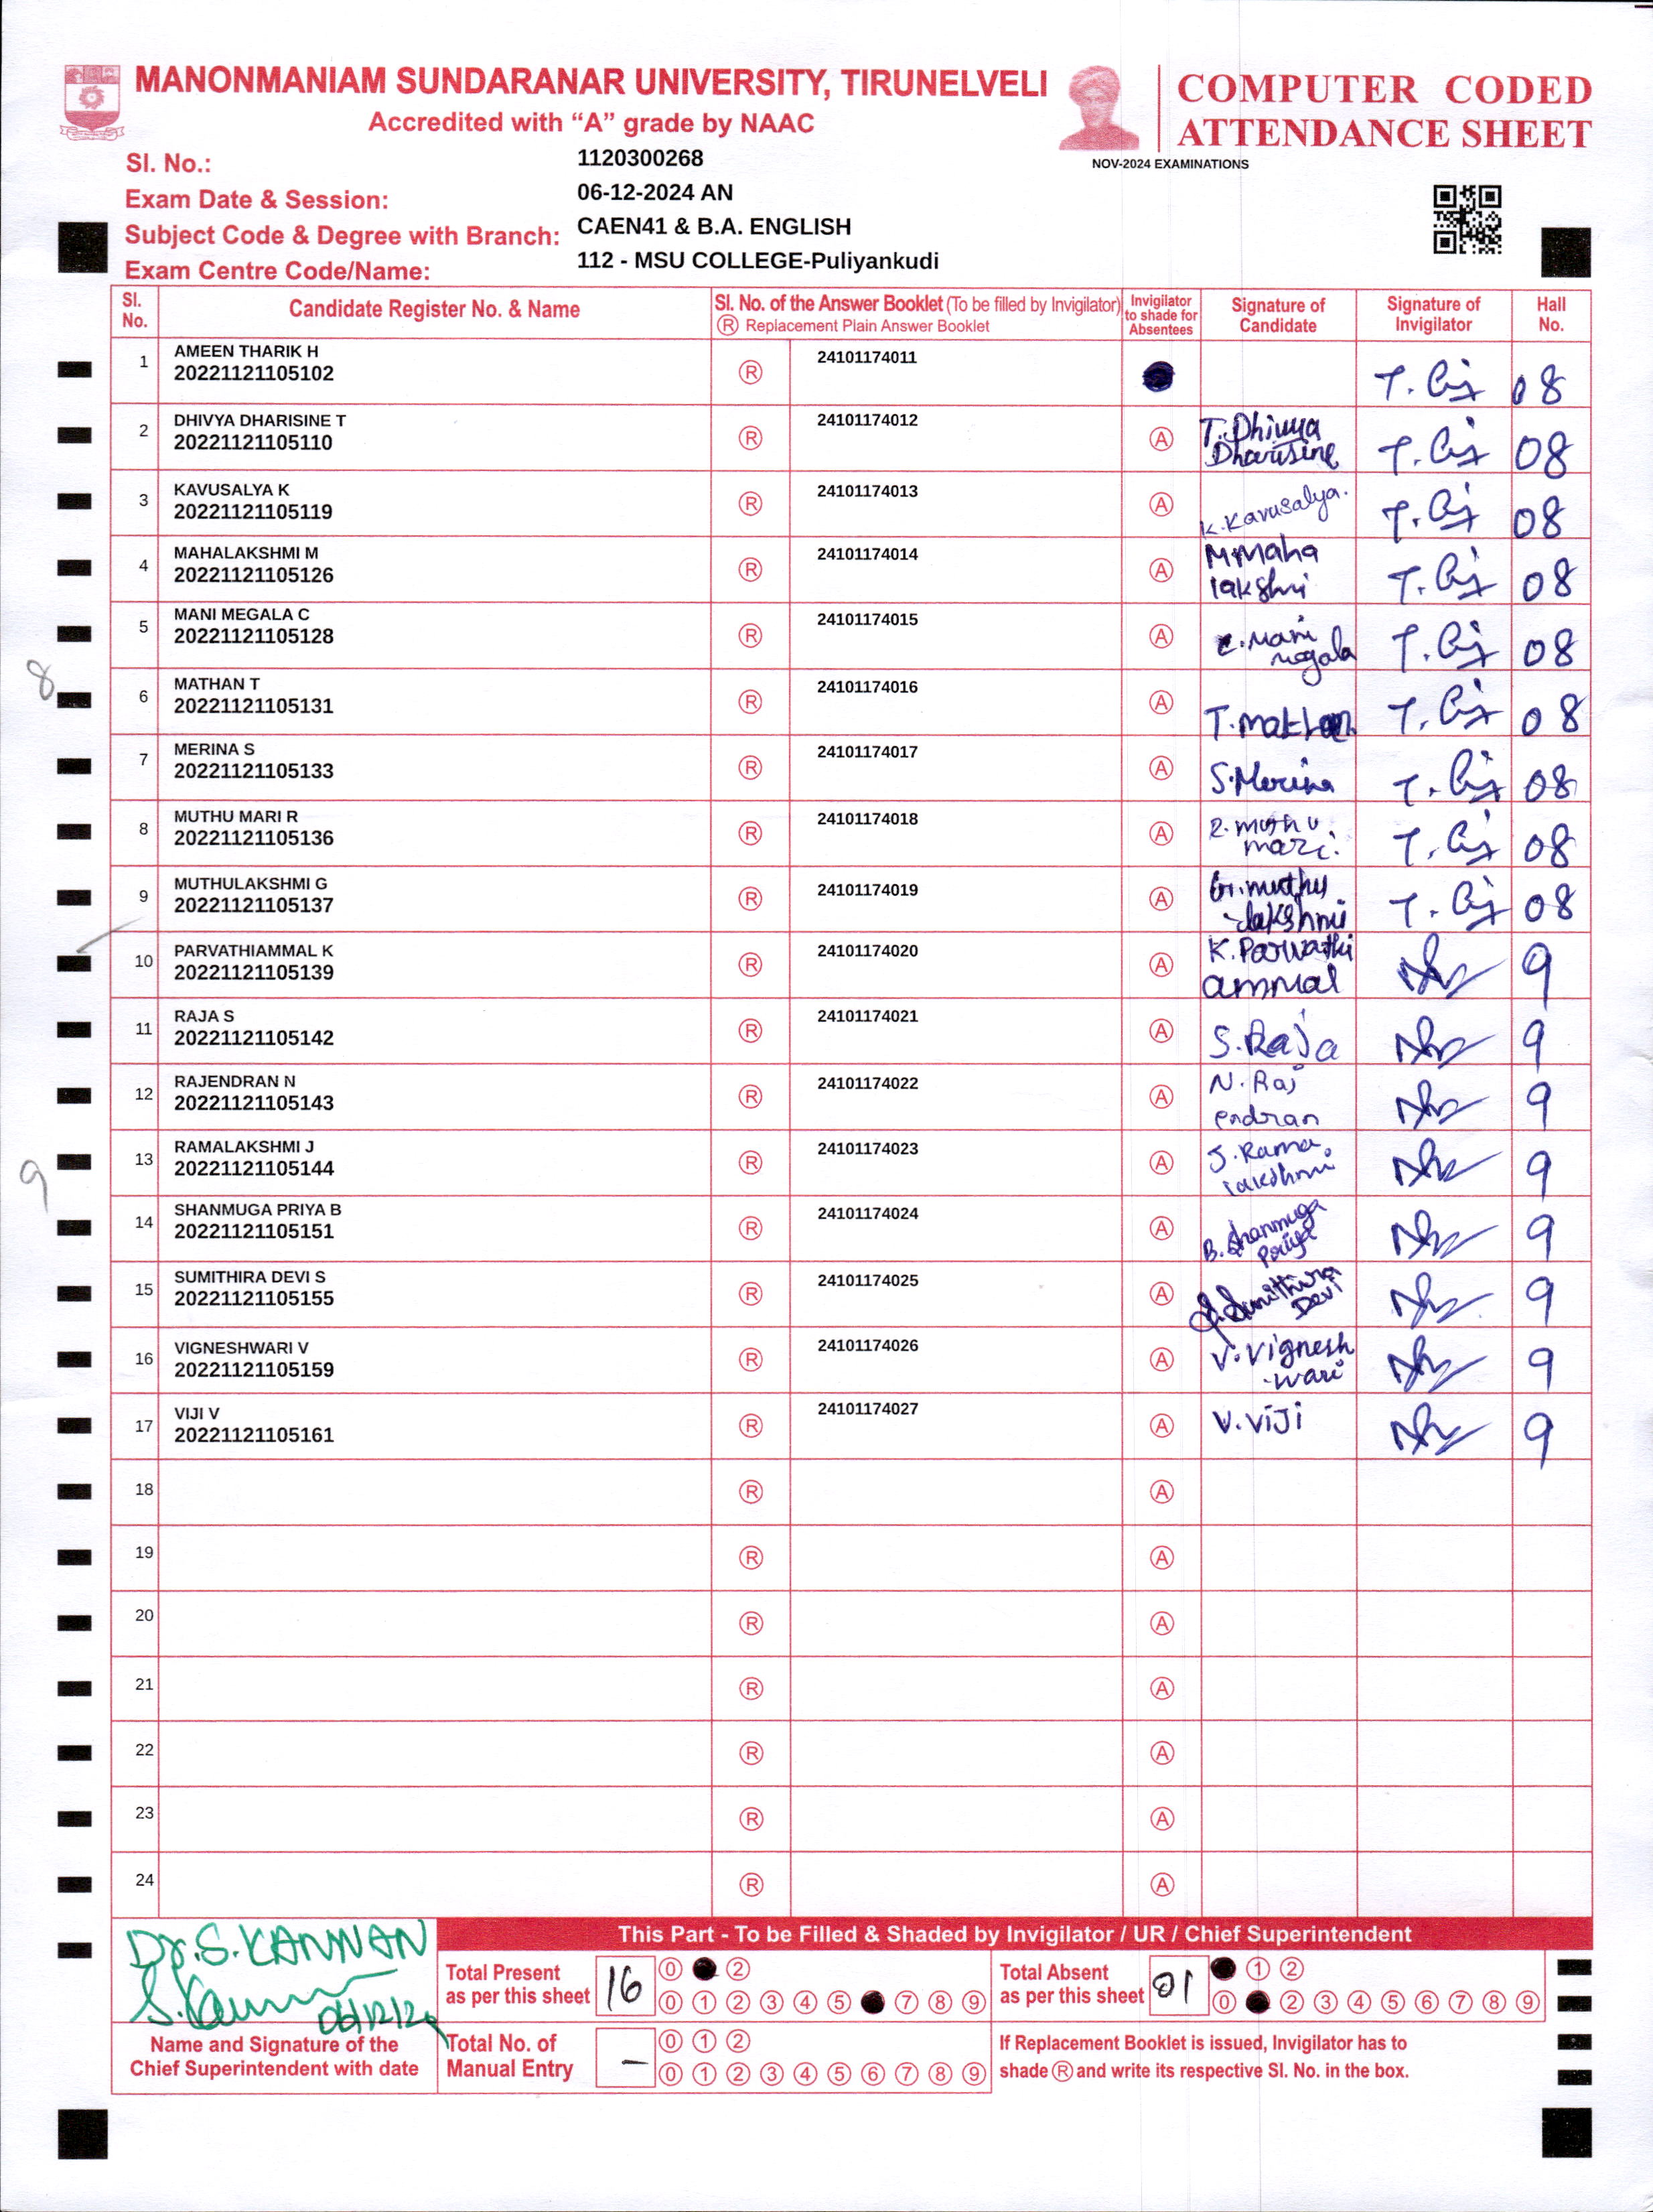 MANONMANIAM SUNDARANAR UNIVERSITY, TIRUNELVELI
Accredited with “A” grade by NAAC
COMPUTER CODED
ATTENDANCE SHEET
NOV-2024 EXAMINATIONS
Sl. No.: 1120300268
Exam Date & Session: 06-12-2024 AN
Subject Code & Degree with Branch: CAEN41 & B.A. ENGLISH
Exam Centre Code/Name: 112 - MSU COLLEGE-Puliyankudi
Sl. No. Candidate Register No. & Name Sl. No. of the Answer Booklet (To be filled by Invigilator) Ⓡ Replacement Plain Answer Booklet Invigilator to shade for Absentees Signature of Candidate Signature of Invigilator Hall No.
1 AMEEN THARIK H 24101174011
20221121105102 Ⓡ 08
2 DHIVYA DHARISINE T 24101174012 T. Dhivya
20221121105110 Ⓡ Ⓐ Dharisine 08
3 KAVUSALYA K 24101174013
20221121105119 Ⓡ Ⓐ K. Kavusalya. 08
4 MAHALAKSHMI M 24101174014 M Maha
20221121105126 Ⓡ Ⓐ lakshmi 08
5 MANI MEGALA C 24101174015 C. Mani
20221121105128 Ⓡ Ⓐ megala 08
6 MATHAN T 24101174016
20221121105131 Ⓡ Ⓐ T. Mathan 08
7 MERINA S 24101174017
20221121105133 Ⓡ Ⓐ S. Merina 08
8 MUTHU MARI R 24101174018 R. muthu
20221121105136 Ⓡ Ⓐ mari. 08
9 MUTHULAKSHMI G 24101174019 G. muthu
20221121105137 Ⓡ Ⓐ -lakshmi 08
10 PARVATHIAMMAL K 24101174020 K. Parvathi
20221121105139 Ⓡ Ⓐ ammal 9
11 RAJA S 24101174021
20221121105142 Ⓡ Ⓐ S. Raja 9
12 RAJENDRAN N 24101174022 N. Raj
20221121105143 Ⓡ Ⓐ endran 9
13 RAMALAKSHMI J 24101174023 J. Rama
20221121105144 Ⓡ Ⓐ lakshmi 9
14 SHANMUGA PRIYA B 24101174024 B. Shanmuga
20221121105151 Ⓡ Ⓐ Priya 9
15 SUMITHIRA DEVI S 24101174025 S. Sumithira
20221121105155 Ⓡ Ⓐ Devi 9
16 VIGNESHWARI V 24101174026 V. Vignesh
20221121105159 Ⓡ Ⓐ -wari 9
17 VIJI V 24101174027 V. Viji
20221121105161 Ⓡ Ⓐ 9
18 Ⓡ Ⓐ
19 Ⓡ Ⓐ
20 Ⓡ Ⓐ
21 Ⓡ Ⓐ
22 Ⓡ Ⓐ
23 Ⓡ Ⓐ
24 Ⓡ Ⓐ
8
9
Dr. S. KANNAN
S. Kannan
06/12/24
Name and Signature of the
Chief Superintendent with date
This Part - To be Filled & Shaded by Invigilator / UR / Chief Superintendent
Total Present 0 2
as per this sheet 16 0 1 2 3 4 5 7 8 9
Total Absent 1 2
as per this sheet 01 0 2 3 4 5 6 7 8 9
Total No. of 0 1 2
Manual Entry – 0 1 2 3 4 5 6 7 8 9
If Replacement Booklet is issued, Invigilator has to
shade Ⓡ and write its respective Sl. No. in the box.